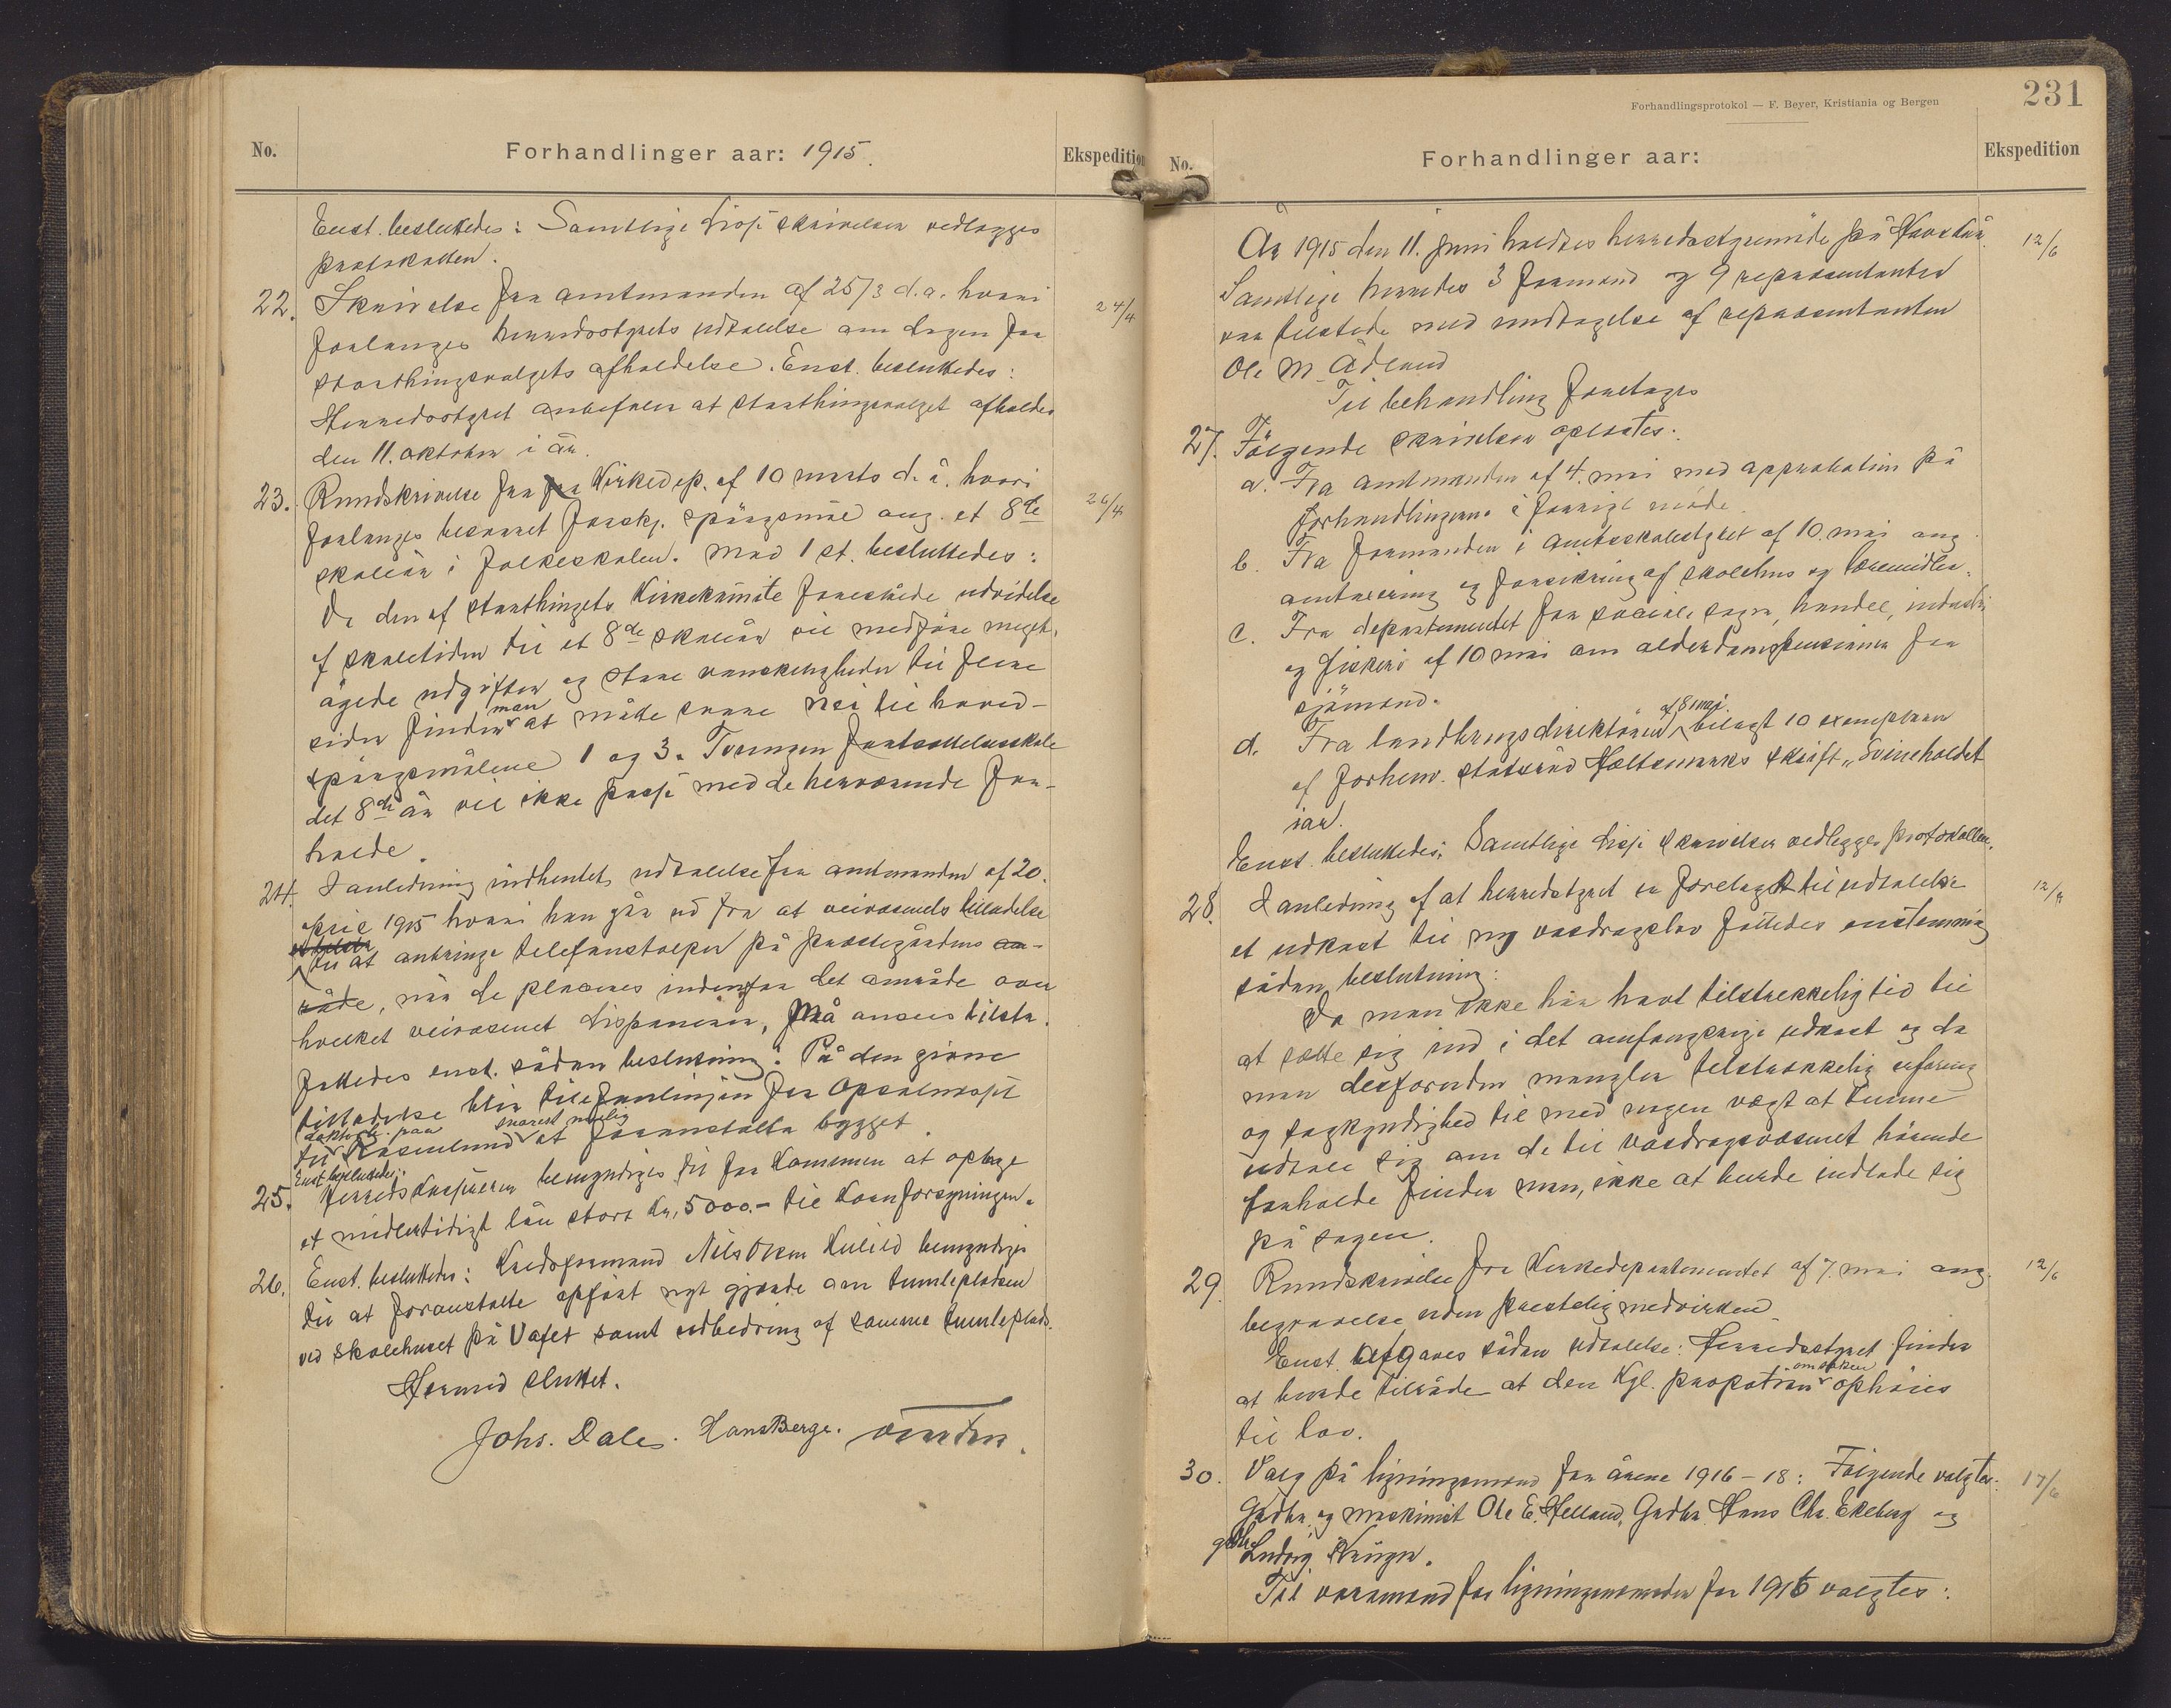 No.
Forhandlinger aar: 1915.
Ekspedition
Enst. besluttedes: Samtlige disse skrivelser vedlægges
protokollen.
22. Skrivelse fra amtmanden af 25/3 d.a. hvori 24/4
forlanges herredsstyrets udtalelse om dagen for
storthingsvalgets afholdelse. Enst. besluttedes:
Herredsstyret anbefaler at storthingsvalget afholdes
den 11. oktober i år.
23. Rundskrivelse fra fra Kirkedep. af 10 marts d. å. hvori 26/4
forlanges besvaret forskj. spørgsmål ang. et 8de
skoleår i folkeskolen. Mod 1 st. besluttedes:
Da den af storthingets Kirkekomite foreslåede udvidelse
af skoletiden til et 8de skoleår vil medføre meget
øgede udgifter og store vanskeligheder til flere
sider finder man at måtte svare nei til hoved-
spørgsmålene 1 og 3. Tvungen fortsættelsesskole
det 8de år vil ikke passe med de herværende for-
holde.
24. I anledning indhentet udtalelse fra amtmanden af 20.
april 1915 hvori han går ud fra at veivæsenets tilladelse
til at anbringe telefonstolper på præstegårdens om-
råde, når de placeres indenfor det område over
hvilket veivæsenet disponerer, må ansees tilstr.
fattedes enst. sådan beslutning: På den givne
tilladelse blir telefonlinjen fra Opsalmoft
til doktorb. paa Rosenlund snarest mulig at foranstalte bygget.
Enst. besluttedes:
25. Herredskassereren bemyndiges til for Kommunen at optage
et midlertidigt lån stort kr. 5000.- til Kornforsyningen.
26. Enst. besluttedes: Kredsformand Nils Olsen Kulild bemyndiges
til at foranstalte opført nyt gjærde om tumlepladsen
ved skolehuset på Vafet samt udbedring af samme tumleplads.
Hermed sluttet.
Johs. Dale. Hans Berge.
231
Forhandlingsprotokol — F. Beyer, Kristiania og Bergen
No.
Forhandlinger aar:
Ekspedition
År 1915 den 11. juni holdtes herredsstyremøde på 12/6
Samtlige herredes 3 formænd og 9 repræsentanter
var tilstede med undtagelse af repræsentanten
Ole M. Ådland
Til behandling foretages
27. Følgende skrivelser oplæstes:
a. Fra amtmanden af 4. mai med approbation på
forhandlingerne i forrige møde.
b. Fra formanden i amtsskolestyret af 10. mai ang.
omtaxering og forsikring af skolehus og læremidler.
c. Fra departementet for sociale sager, handel, industri
og fiskeri af 10 mai om alderdomspensioner for
sjømænd.
d. Fra landbrugsdirektøren af 8 mai. bilagt 10 exemplarer
af forhenv. statsråd Holtsmarks skrift „Svineholdet
iår.
Enst. besluttedes: Samtlige disse skrivelser vedlægges protokollen.
28. I anledning af at herredstyret er forelagt til udtalelse 12/6
et udkast til ny vasdragslov fattedes enstemmig
sådan beslutning:
Da man ikke har havt tilstrækkelig tid til
at sætte sig ind i det omfangsrige udkast og da
man desforuden mangler tilstrækkelig erfaring
og sagkyndighed til med nogen vægt at kunne
udtale sig om de til vasdragsvæsenet hørende
forholde finder man, ikke at burde indlade sig
på sagen.
29. Rundskrivelse fra Kirkedepartementet af 7. mai ang. 12/6
begravelse uden prestelig medvirken
Enst. afgaves sådan udtalelse: Herredsstyret finder
at burde tilråde at den Kgl. propotion om saken ophøies
til lov.
30. Valg på ligningsmænd for årene 1916-18: Følgende valgtes: 17/6
Gadbr. og maskinist Ole E. Helland, Gadbr. Hans Chr. Ekeberg og
gdbr. Ludvig Krüger.
Til varamænd for ligningsmænden for 1916 valgtes: